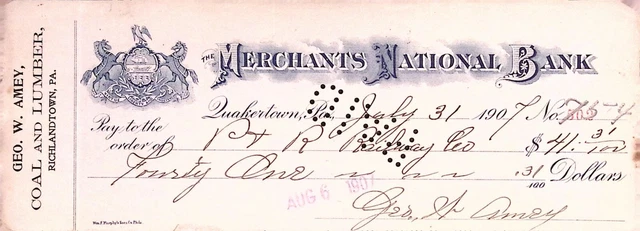 GEO. W. AMEY,
COAL AND LUMBER,
RICHLANDTOWN, PA.
THE MERCHANTS NATIONAL BANK
Quakertown, Pa., July 31 1907 No.
Pay to the
order of P & R Railway Co $41.31/100
Fourty One .31/100 Dollars
AUG 6 1907
Geo. W Amey